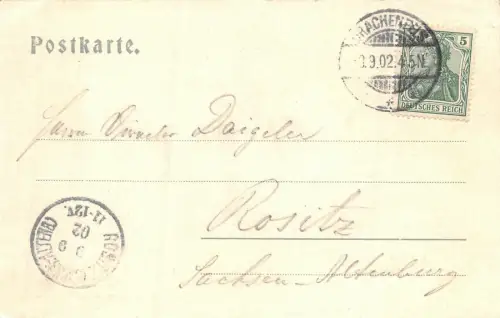 Postkarte.
DRACHENFELS
9.02.4-5N.
5
DEUTSCHES REICH
Herrn Director Daigeler
Rositz
Sachsen-Altenburg
11-12V.
02
9